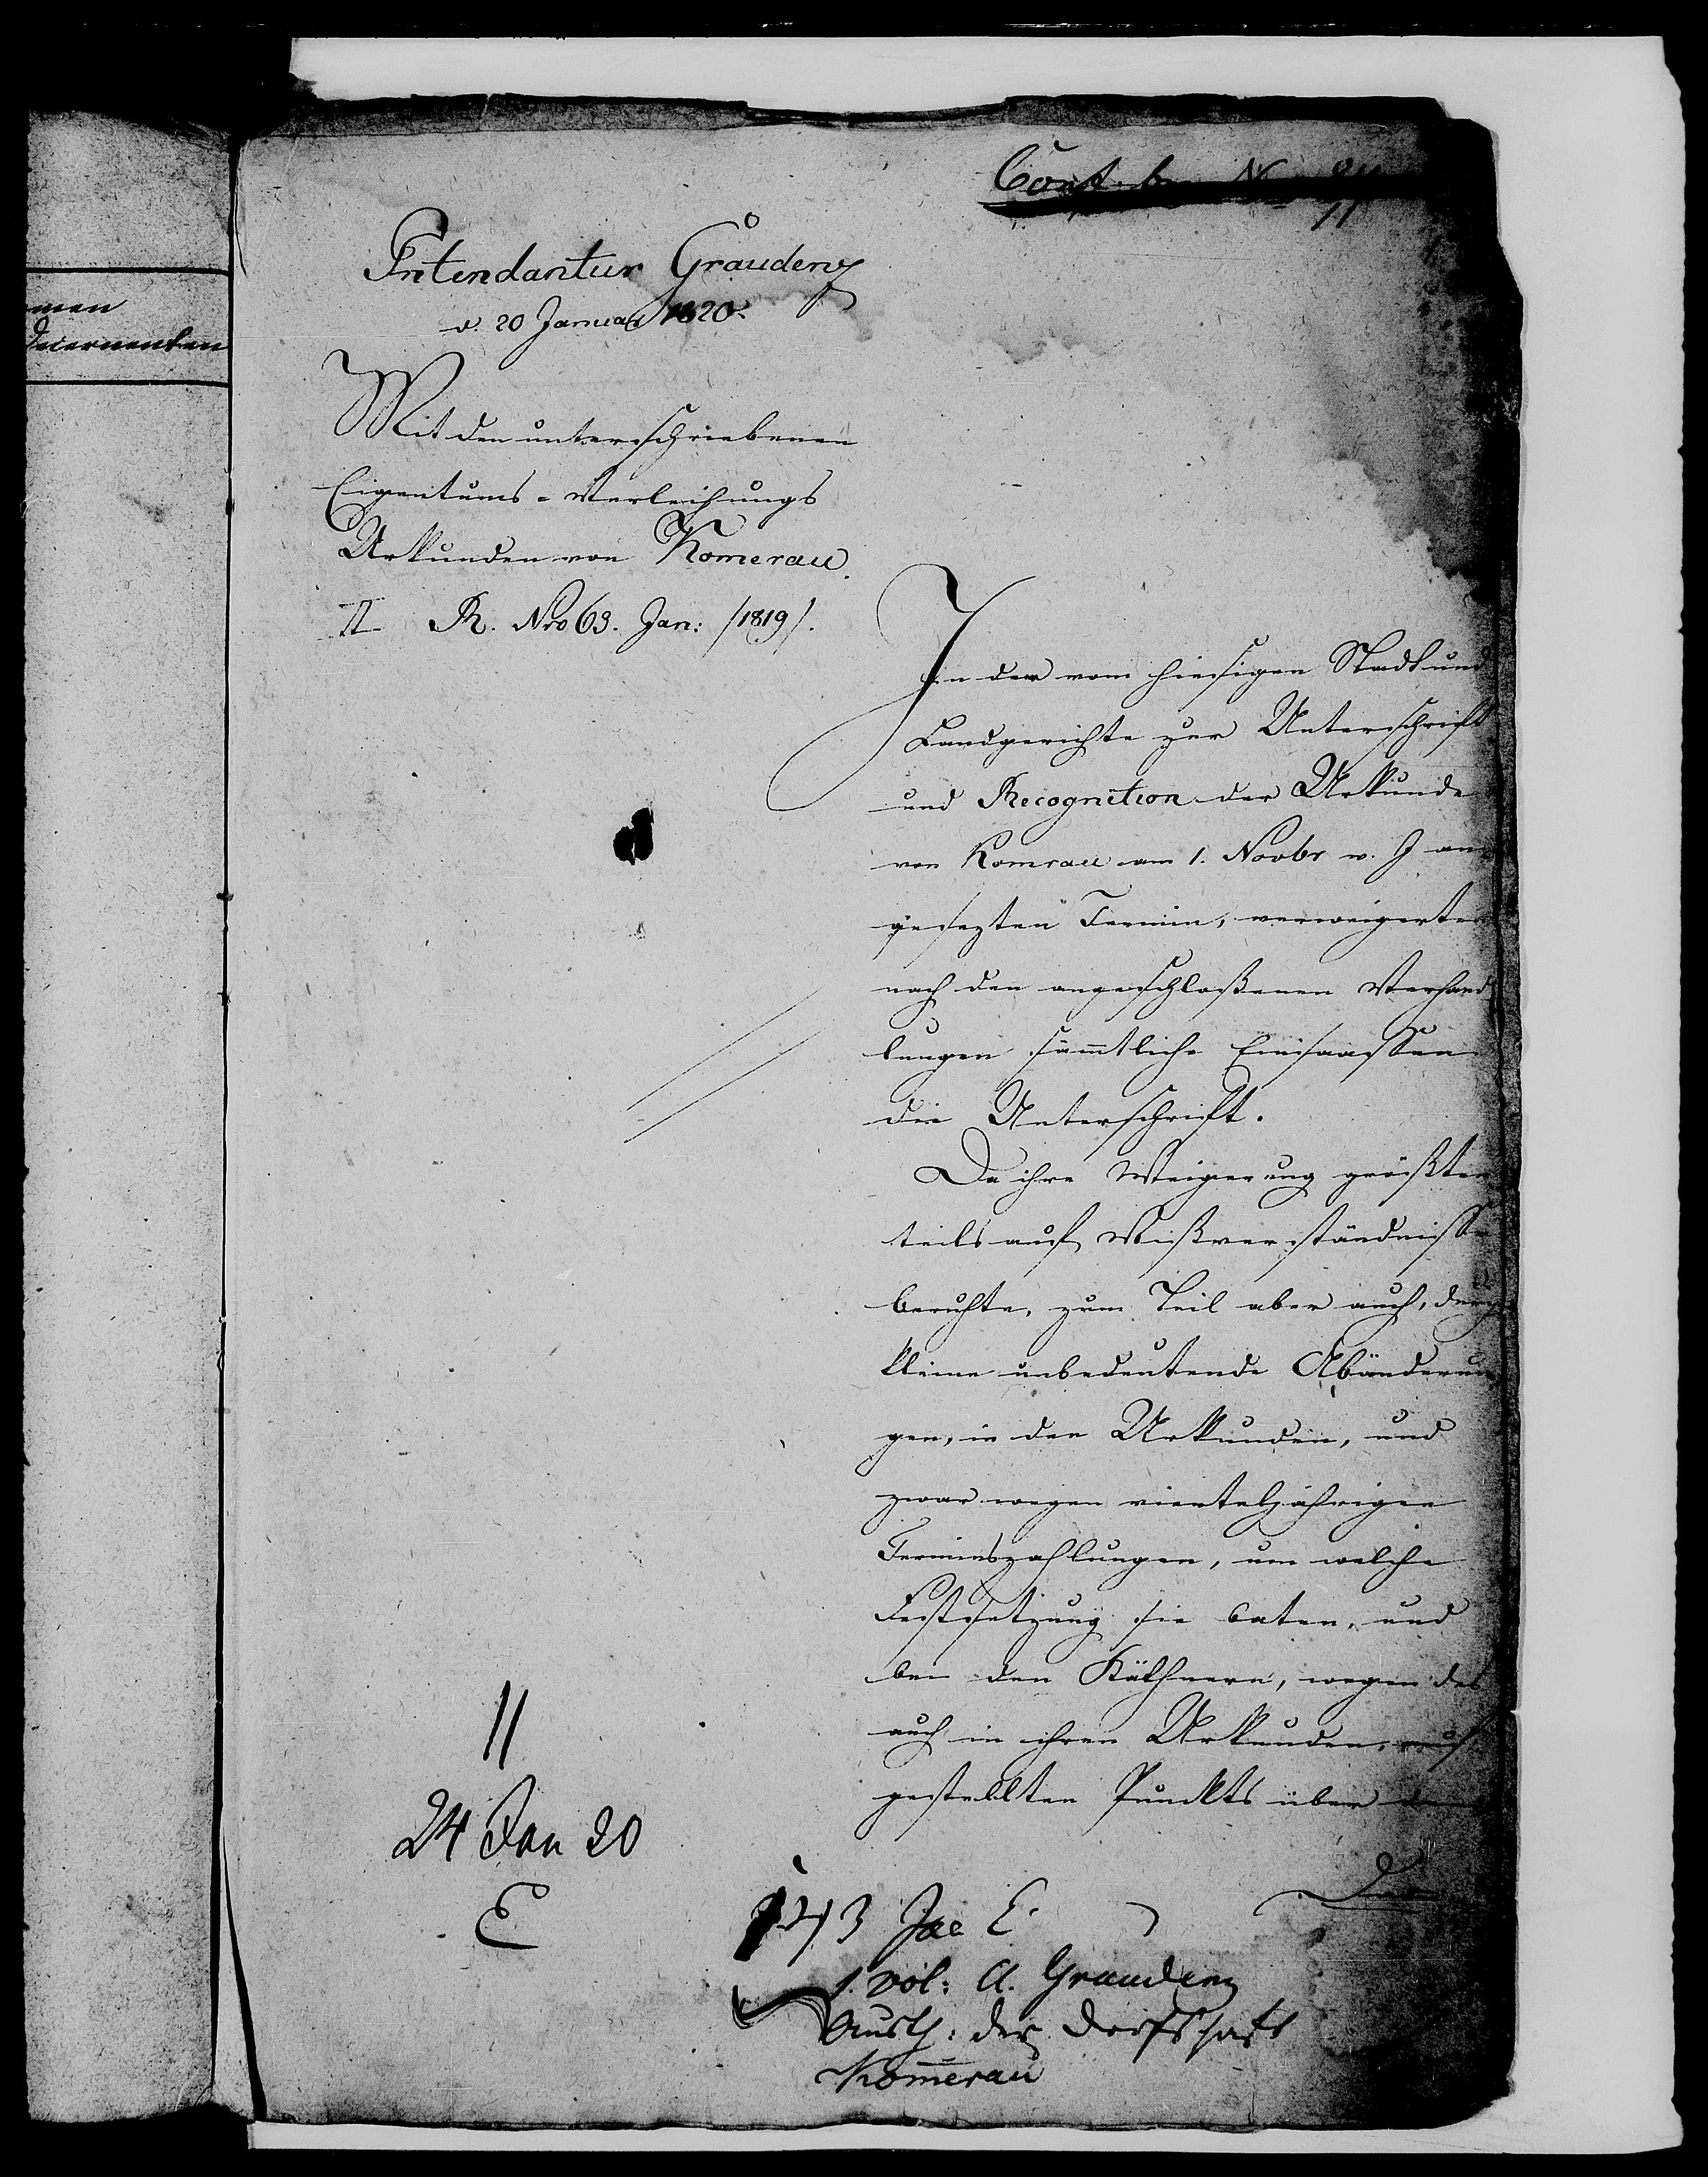 men
Decernenten
Intendantur Graudenz
d. 20 Januar 1820.
Mit den unterschriebenen
Eigentums-Verleihungs
Urkunden von Komerau.
II R. Nro 63. Jan: /1819/.
In dem vom hiesigen Stadt und
Landgerichte zur Unterschrift
und Recognition der Urkunde
von Komrau am 1. Novbr v. J an
gesezten Termin, verweigerten
nach den angeschloßenen Verhand
lungen sämtliche Einsaassen
die Unterschrift.
Da ihre Weigerung größten
teils auf Mißverständnisse
beruhte, zum Teil aber auch, durch
kleine unbedeutende Abänderun
gen, in den Urkunden, und
zwar wegen vierteljährigen
Terminszahlungen, um welche
Festsetzung sie baten, und
bei den Käthnern, wegen des
auch in ihren Urkunden, auf
gestellten Punkts über den
24 Jan 20
E
1. vol: A. Graudenz
der Dorfschaft
Komerau